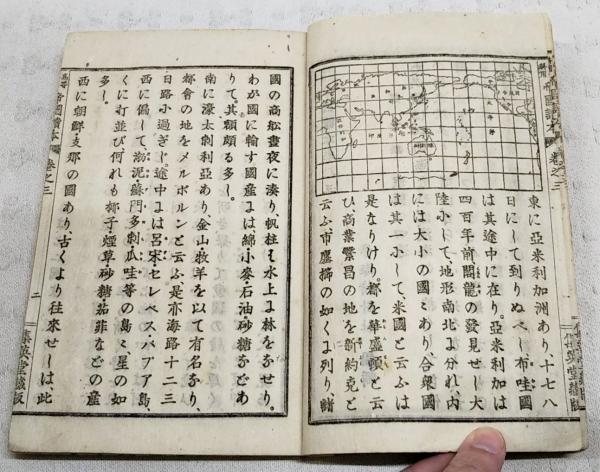 東に亞米利加洲あり、十七八
日にして到りぬべし布哇國
は其途中に在り。亞米利加は
四百年前閣龍の發見せし大
陸にして地形南北に分れ、内
には大小の國々あり、合衆國
は其一にして米國と云ふは
是なりけり。都を華盛頓と云
ひ、商業繁昌の地を新約克と
云ふ市廛櫛の如くに列り諸
國の商舩晝夜に湊り、帆柱は水上に林をなせり。
わが國に輸す國産は、綿小麥・石油砂糖などあ
りて、其類頗る多し。
南に濠太剌利亞あり、金山牧羊を以て有名なり、
都會の地をメルボルンと云ふ是亦海路十二三
日路に過ぎじ途中には呂宋セレベスパプア島、
西に偏して、渤泥・蘇門多剌・瓜哇等の島々、星の如
くに打並び何れも椰子・煙草・砂糖・茄菲などの産
多し。
西に朝鮮・支那の國あり、古くより往來せしは、此
帝國讀本 卷之三
二
集英堂藏版